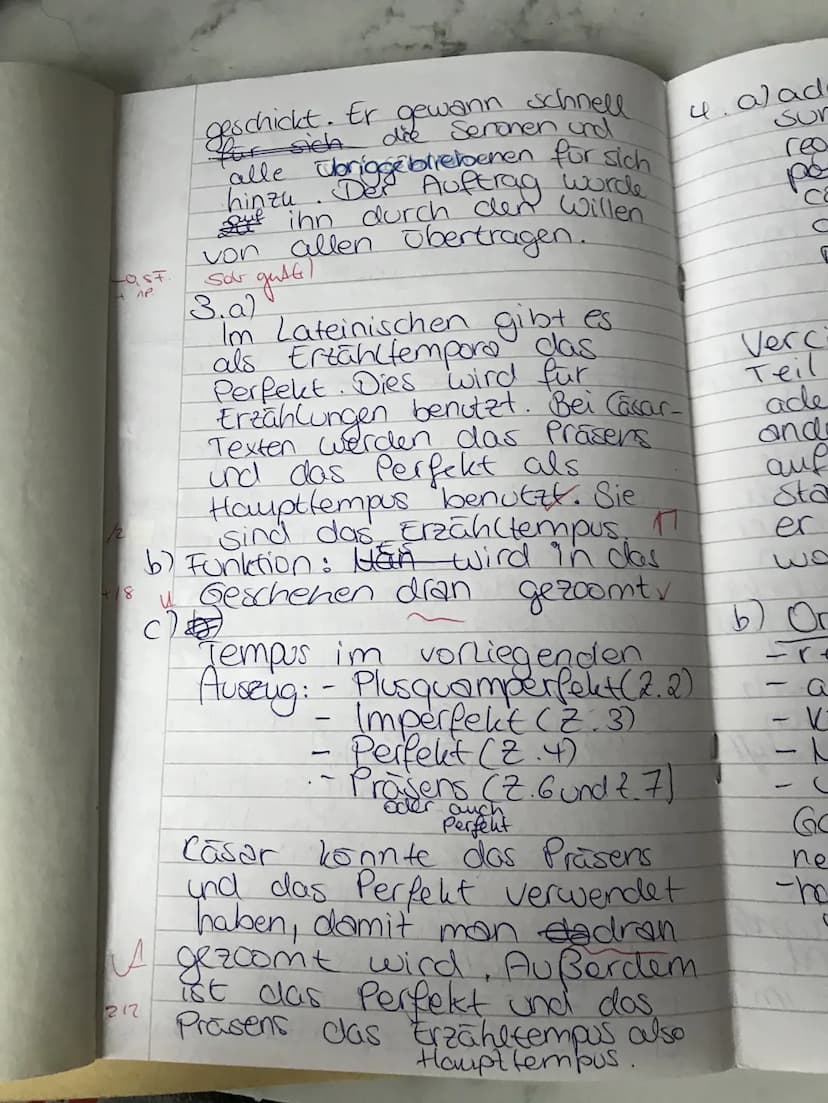 geschickt. Er gewann schnell
für sich die Senonen und
alle übriggebliebenen für sich
hinzu. Der Auftrag wurde
auf ihn durch den Willen
von allen übertragen.
Sehr gut!
3.a)
Im Lateinischen gibt es
als Erzähltempora das
Perfekt. Dies wird für
Erzählungen benutzt. Bei Cäsar-
Texten werden das Präsens
und das Perfekt als
Haupttempus benutzt. Sie
sind das Erzähltempus.
b) Funktion: Man wird in das
Geschehen dran gezoomt
c)
Tempus im vorliegenden
Auszug: - Plusquamperfekt (Z.2)
- Imperfekt (Z.3)
- Perfekt (Z.4)
- Präsens (Z.6 und Z.7)
oder auch
Perfekt
Cäsar könnte das Präsens
und das Perfekt verwendet
haben, damit man dran
gezoomt wird. Außerdem
ist das Perfekt und das
Präsens das Erzähltempus also
Haupttempus.
2/2
4. a) ad
Verc
Teil
ade
and
auf
Sta
er
wo
b) Or